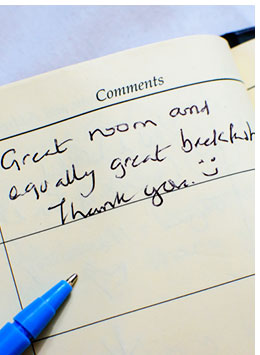 Comments
Great room and
equally great breakfast
Thank you. :)